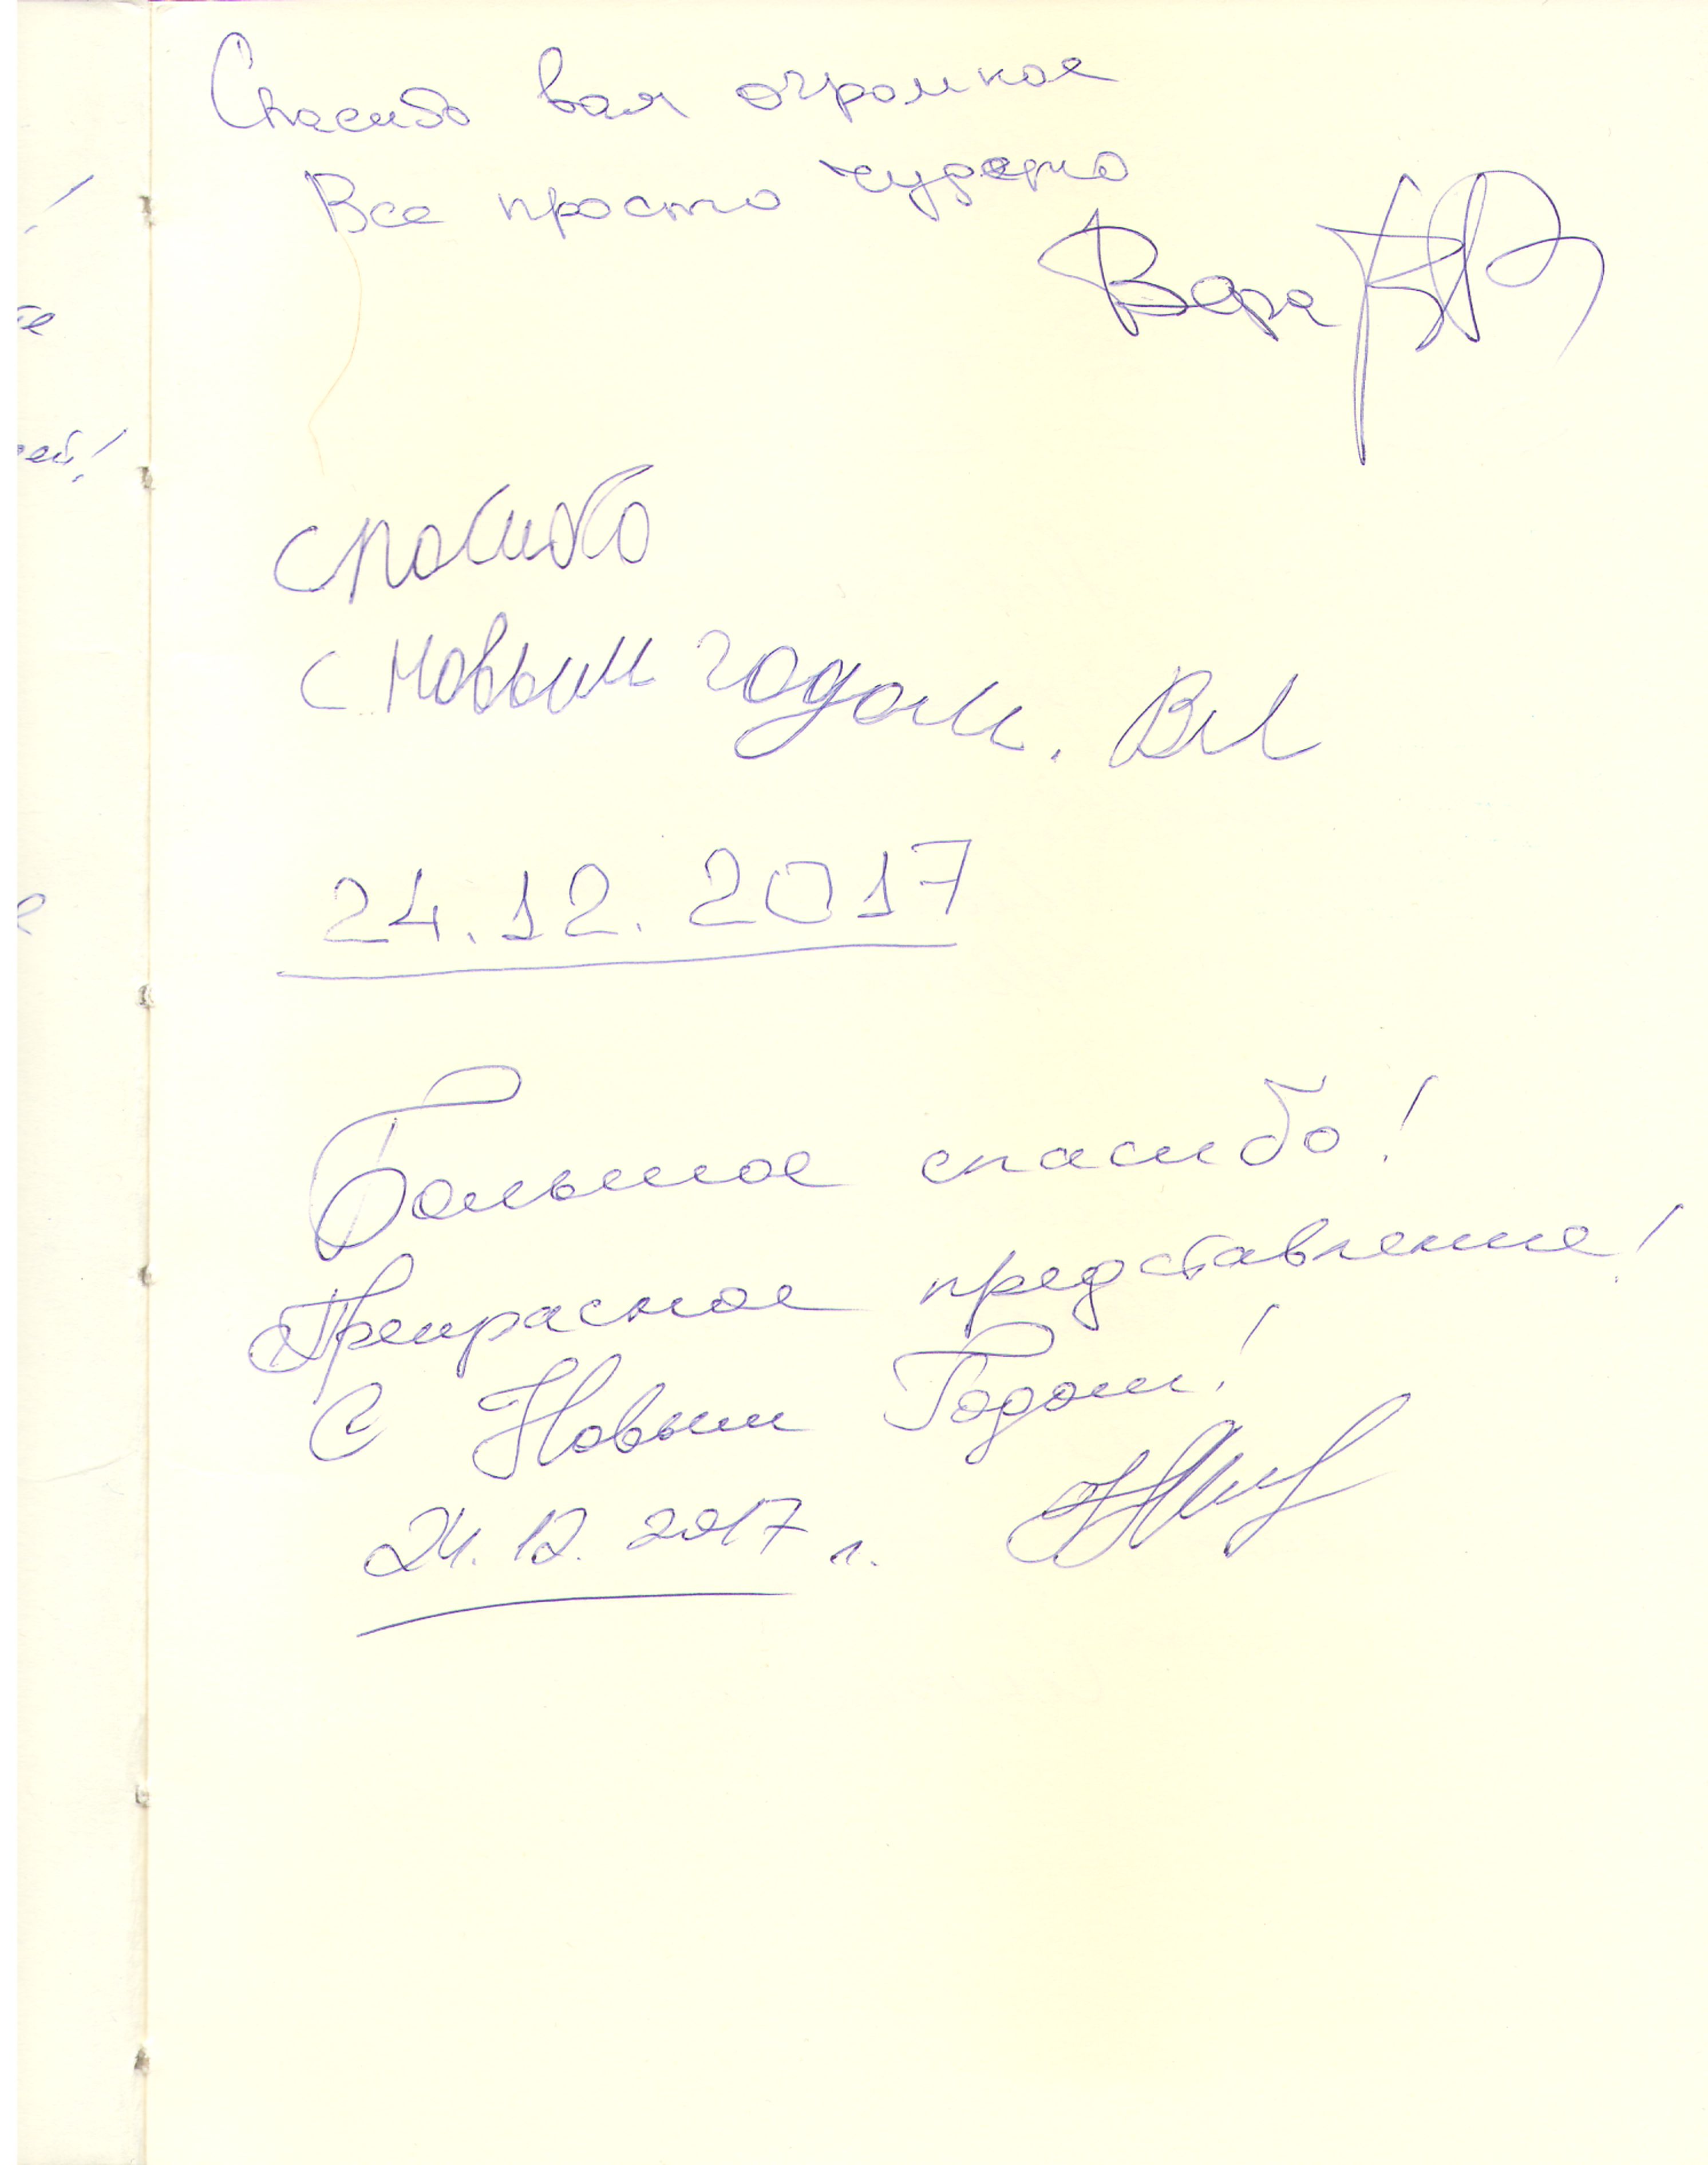 Спасибо вам огромное
Все просто чудесно
Вера
спасибо
с новым годом.
24.12.2017
Большое спасибо!
Прекрасное представление!
С Новым Годом!
24.12.2017 г.